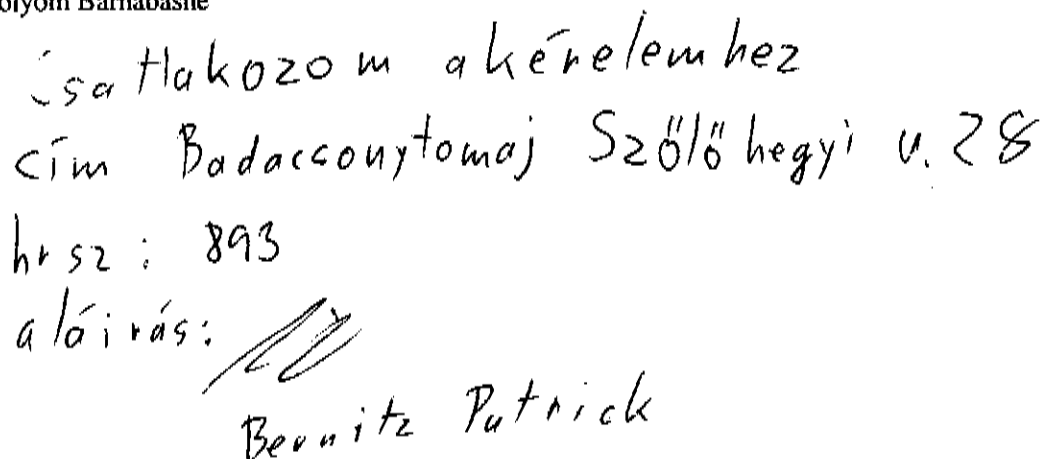 Barnabásné
csatlakozom a kérelemhez
cím Badacsonytomaj Szőlőhegyi u. 28
hrsz: 893
aláírás:
Bernitz Patrick